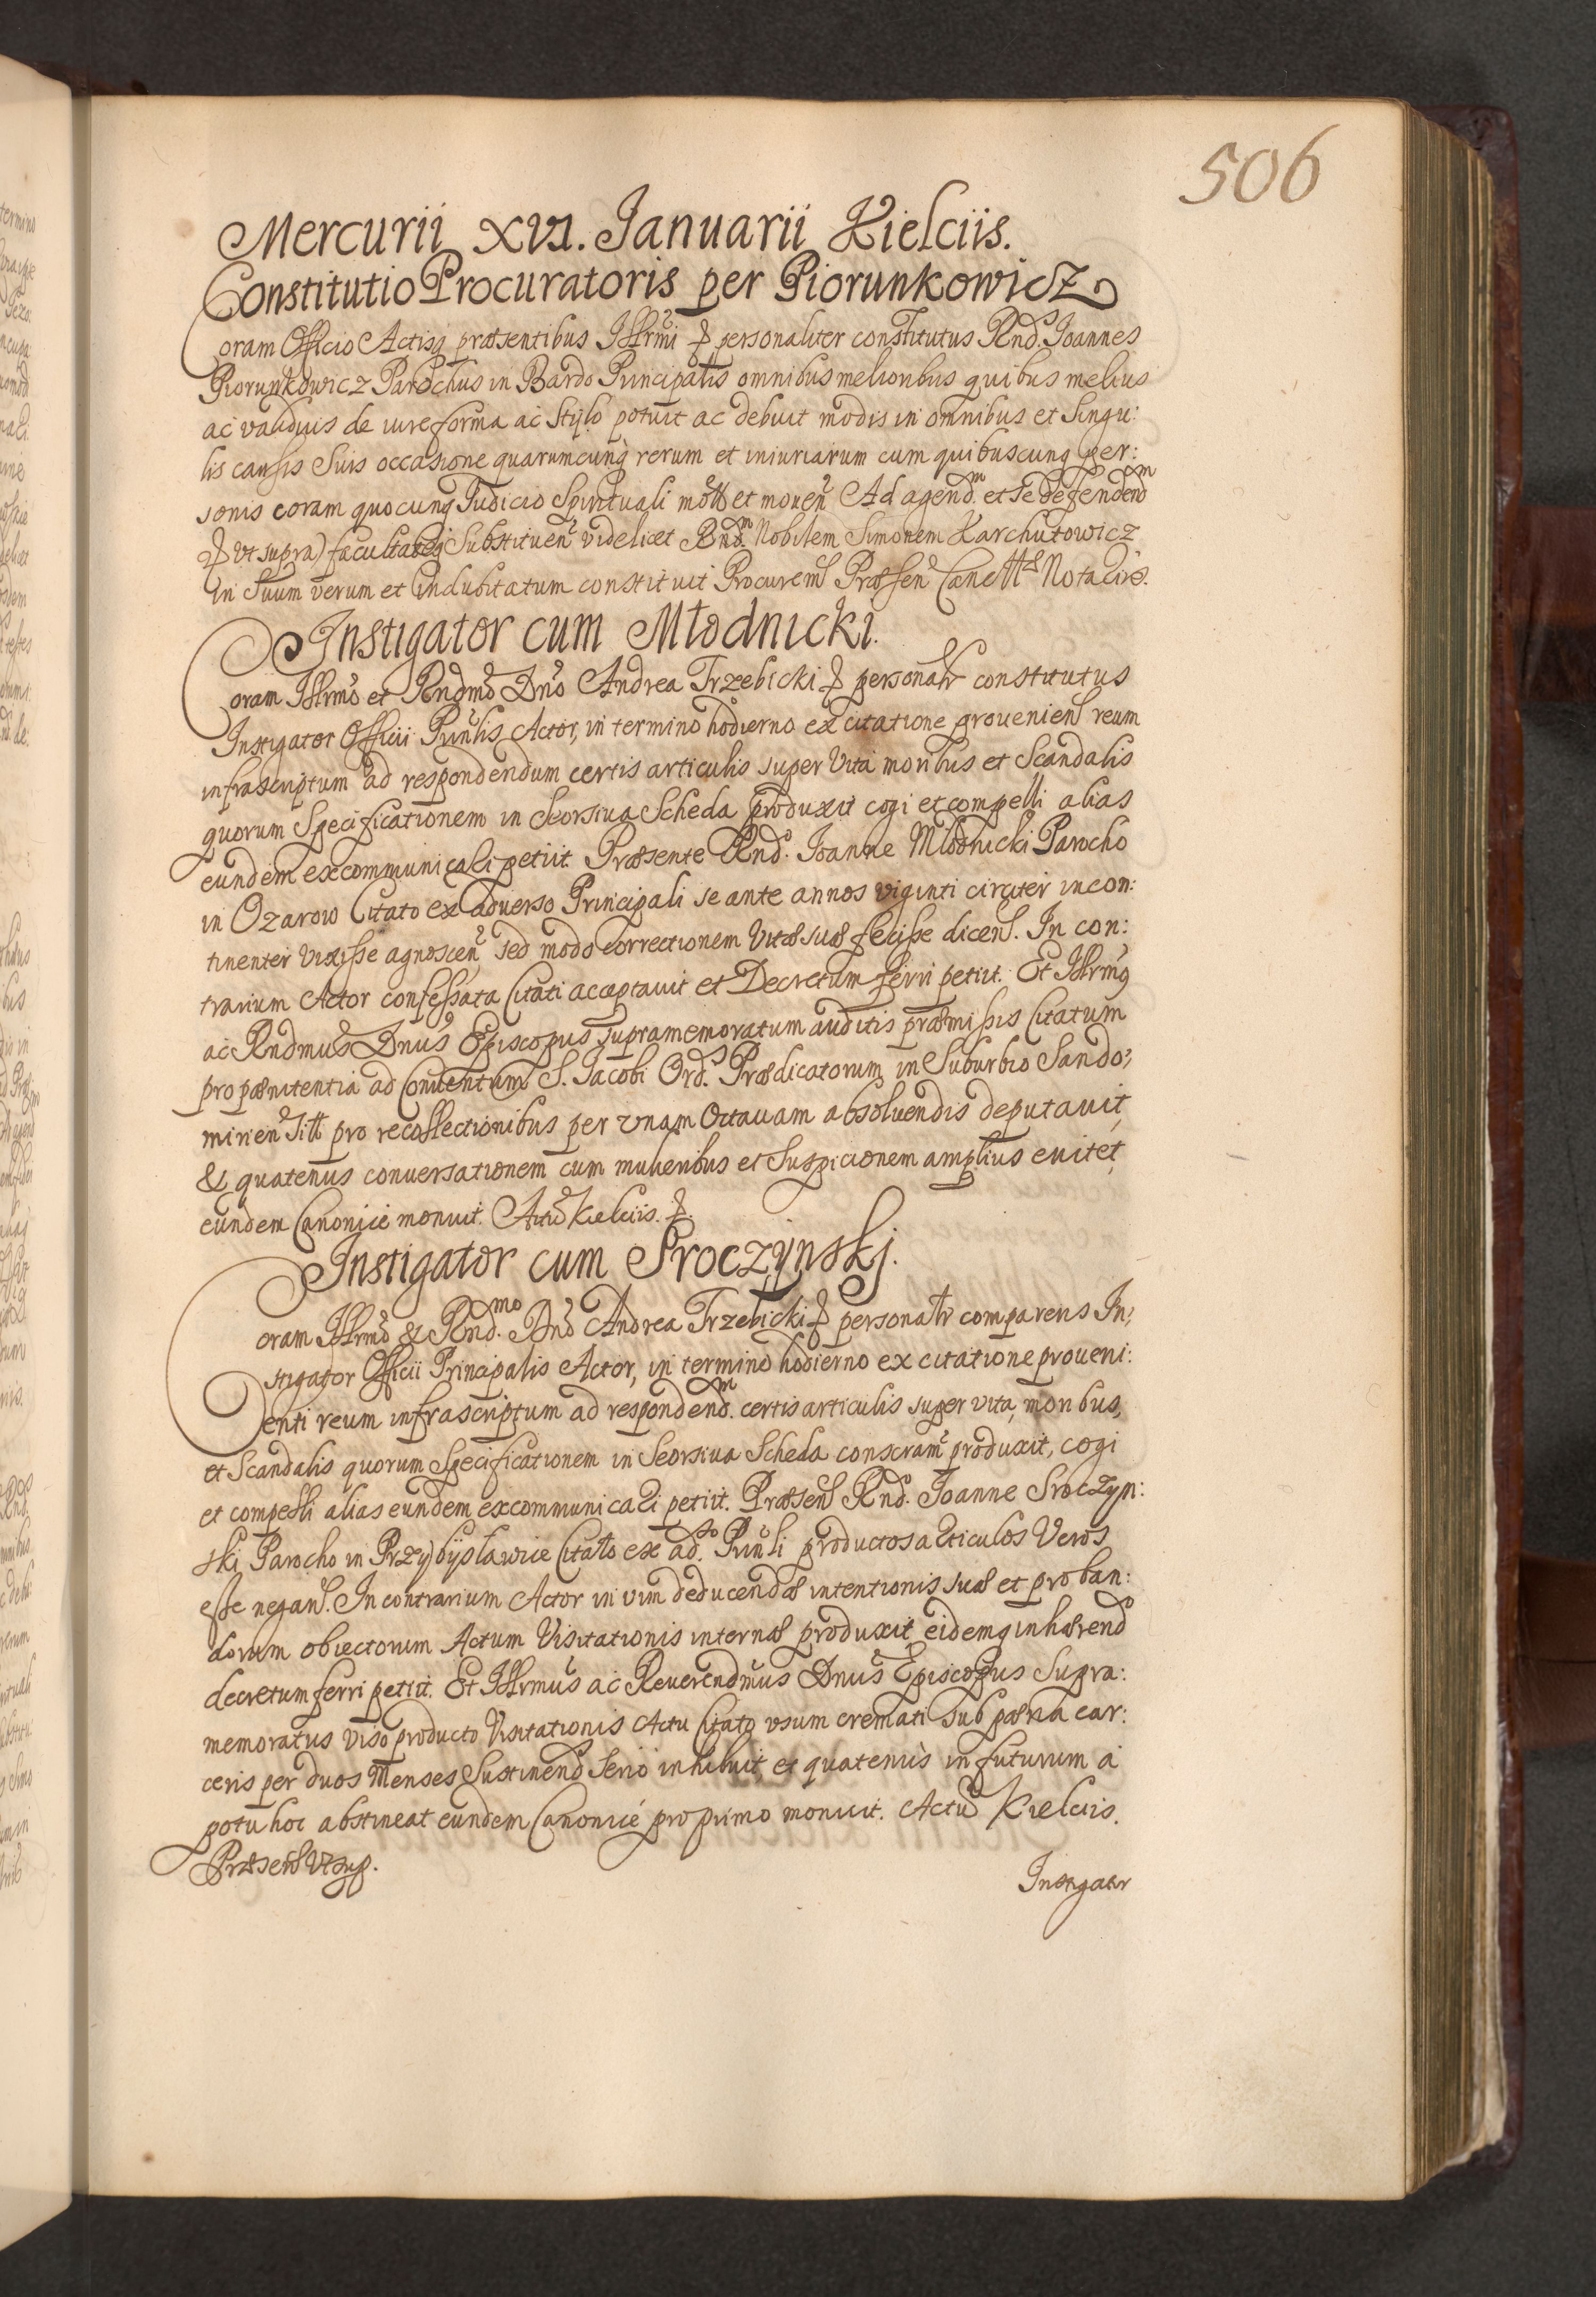 506
Mercurii XVI. Ianuarii Kielciis.
Constitutio Procuratoris per Piorunkowicz
Coram Officio Actisq praesentibus Illrmi personaliter constitutus Rnd. Ioannes
Piorunkowicz Parochus in Bardo Principalis omnibus melioribus quibus melius
ac validius de iure forma ac Stylo potuit ac debuit modis in omnibus et Singu:
lis causis Suis occasione quarumcunq rerum et iniuriarum cum quibuscunq per:
sonis coram quocunq Iudicio Spirituali mott et mouen Ad agendm et se defendendm
ut supra) facultateq Substituen videlicet Rndm Nobilem Simonem Karchutowicz
in Suum verum et indubitatum constituit Procurem Praesen Canc Notariis.
Instigator cum Młodnicki.
Coram Illrmo et Rndmo Dno Andrea Trzebicki personalr constitutus
Instigator Officii Punlis Actor, in termino hodierno ex citatione prouenien reum
infrascriptum ad respondendum certis articulis super Vita moribus et Scandalis
quorum Specificationem in Seorsiua Scheda produxit cogi et compelli alias
eundem excommunicari petiit. Praesente Rndo. Ioanne Młodnicki Parocho
in Ozarow Citato ex aduerso Principali se ante annos viginti circiter incon:
tinenter Vixisse agnoscen sed modo correctionem Vitae suae fecisse dicen. In con:
trarium Actor confessata Citati acceptauit et Decretum ferri petiit. Et Illrmq
ac Rndmus Dnus Episcopus supramemoratum auditis praemissis Citatum
pro paenitentia ad Conuentum S. Iacobi Ords. Praedicatorum in Suburbio Sando:
mirien Sitt pro recollectionibus per vnam Octauam absoluendis deputauit,
& quatenus conuersationem cum mulieribus et Suspicionem amplius euitet,
eundem Canonice monuit. Actu Kielciis.
Instigator cum Sroczynskj.
Coram Illrmo & Rnd.mo Dno Andrea Trzebicki personalr comparens In:
stigator Officii Principalis Actor, in termino hodierno ex citatione proueni:
enti reum infrascriptum ad respondendm. certis articulis super vita, moribus,
et Scandalis quorum Specificationem in Seorsiua Scheda conscram produxit, cogi
et compelli alias eundem excommunicari petiit. Praesen Rndo. Ioanne Sroczyn:
ski Parocho in Przybysławice Citato ex ad.so Punli productos articulos Veros
esse negan. In contrarium Actor in vim deducendae intentionis suae et proban:
dorum obiectorum Actum Visitationis internae produxit, eidemq inhaerendo
decretum ferri petiit. Et Illrmus ac Reuerendmus Dnus Episcopus Supra:
memoratus viso producto Visitationis Actu Citato vsum cremati Sub paena car:
ceris per duos Menses Sustinend Serio inhibuit, et quatenus in futurum a
potu hoc abstineat eundem Canonice pro primo monuit. Actu Kielciis.
Praesen Vt sup.
Instigator